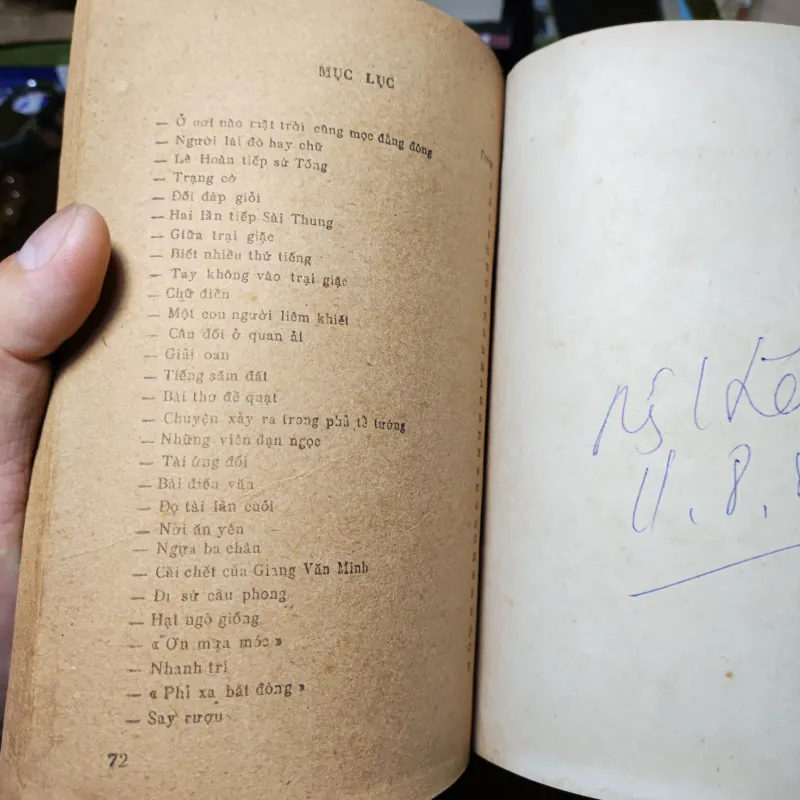 MỤC LỤC
— Ở nơi nào mặt trời cũng mọc đằng đông
— Người lái đò hay chữ
— Lê Hoàn tiếp sứ Tống
— Trạng cờ
— Đối đáp giỏi
— Hai lần tiếp Sài Thung
— Giữa trại giặc
— Biết nhiều thứ tiếng
— Tay không vào trại giặc
— Chữ điền
— Một con người liêm khiết
— Câu đối ở quan ải
— Giải oan
— Tiếng sấm đất
— Bài thơ đề quạt
— Chuyện xảy ra trong phủ tể tướng
— Những viên đạn ngọc
— Tài ứng đối
— Bài điếu văn
— Đọ tài lần cuối
— Nơi ăn yên
— Ngựa ba chân
— Cái chết của Giang Văn Minh
— Đi sứ cầu phong
— Hạt ngô giống
— « Ơn mưa móc »
— Nhanh trí
— « Phi xa bất đông »
— Say rượu
72
11.8.